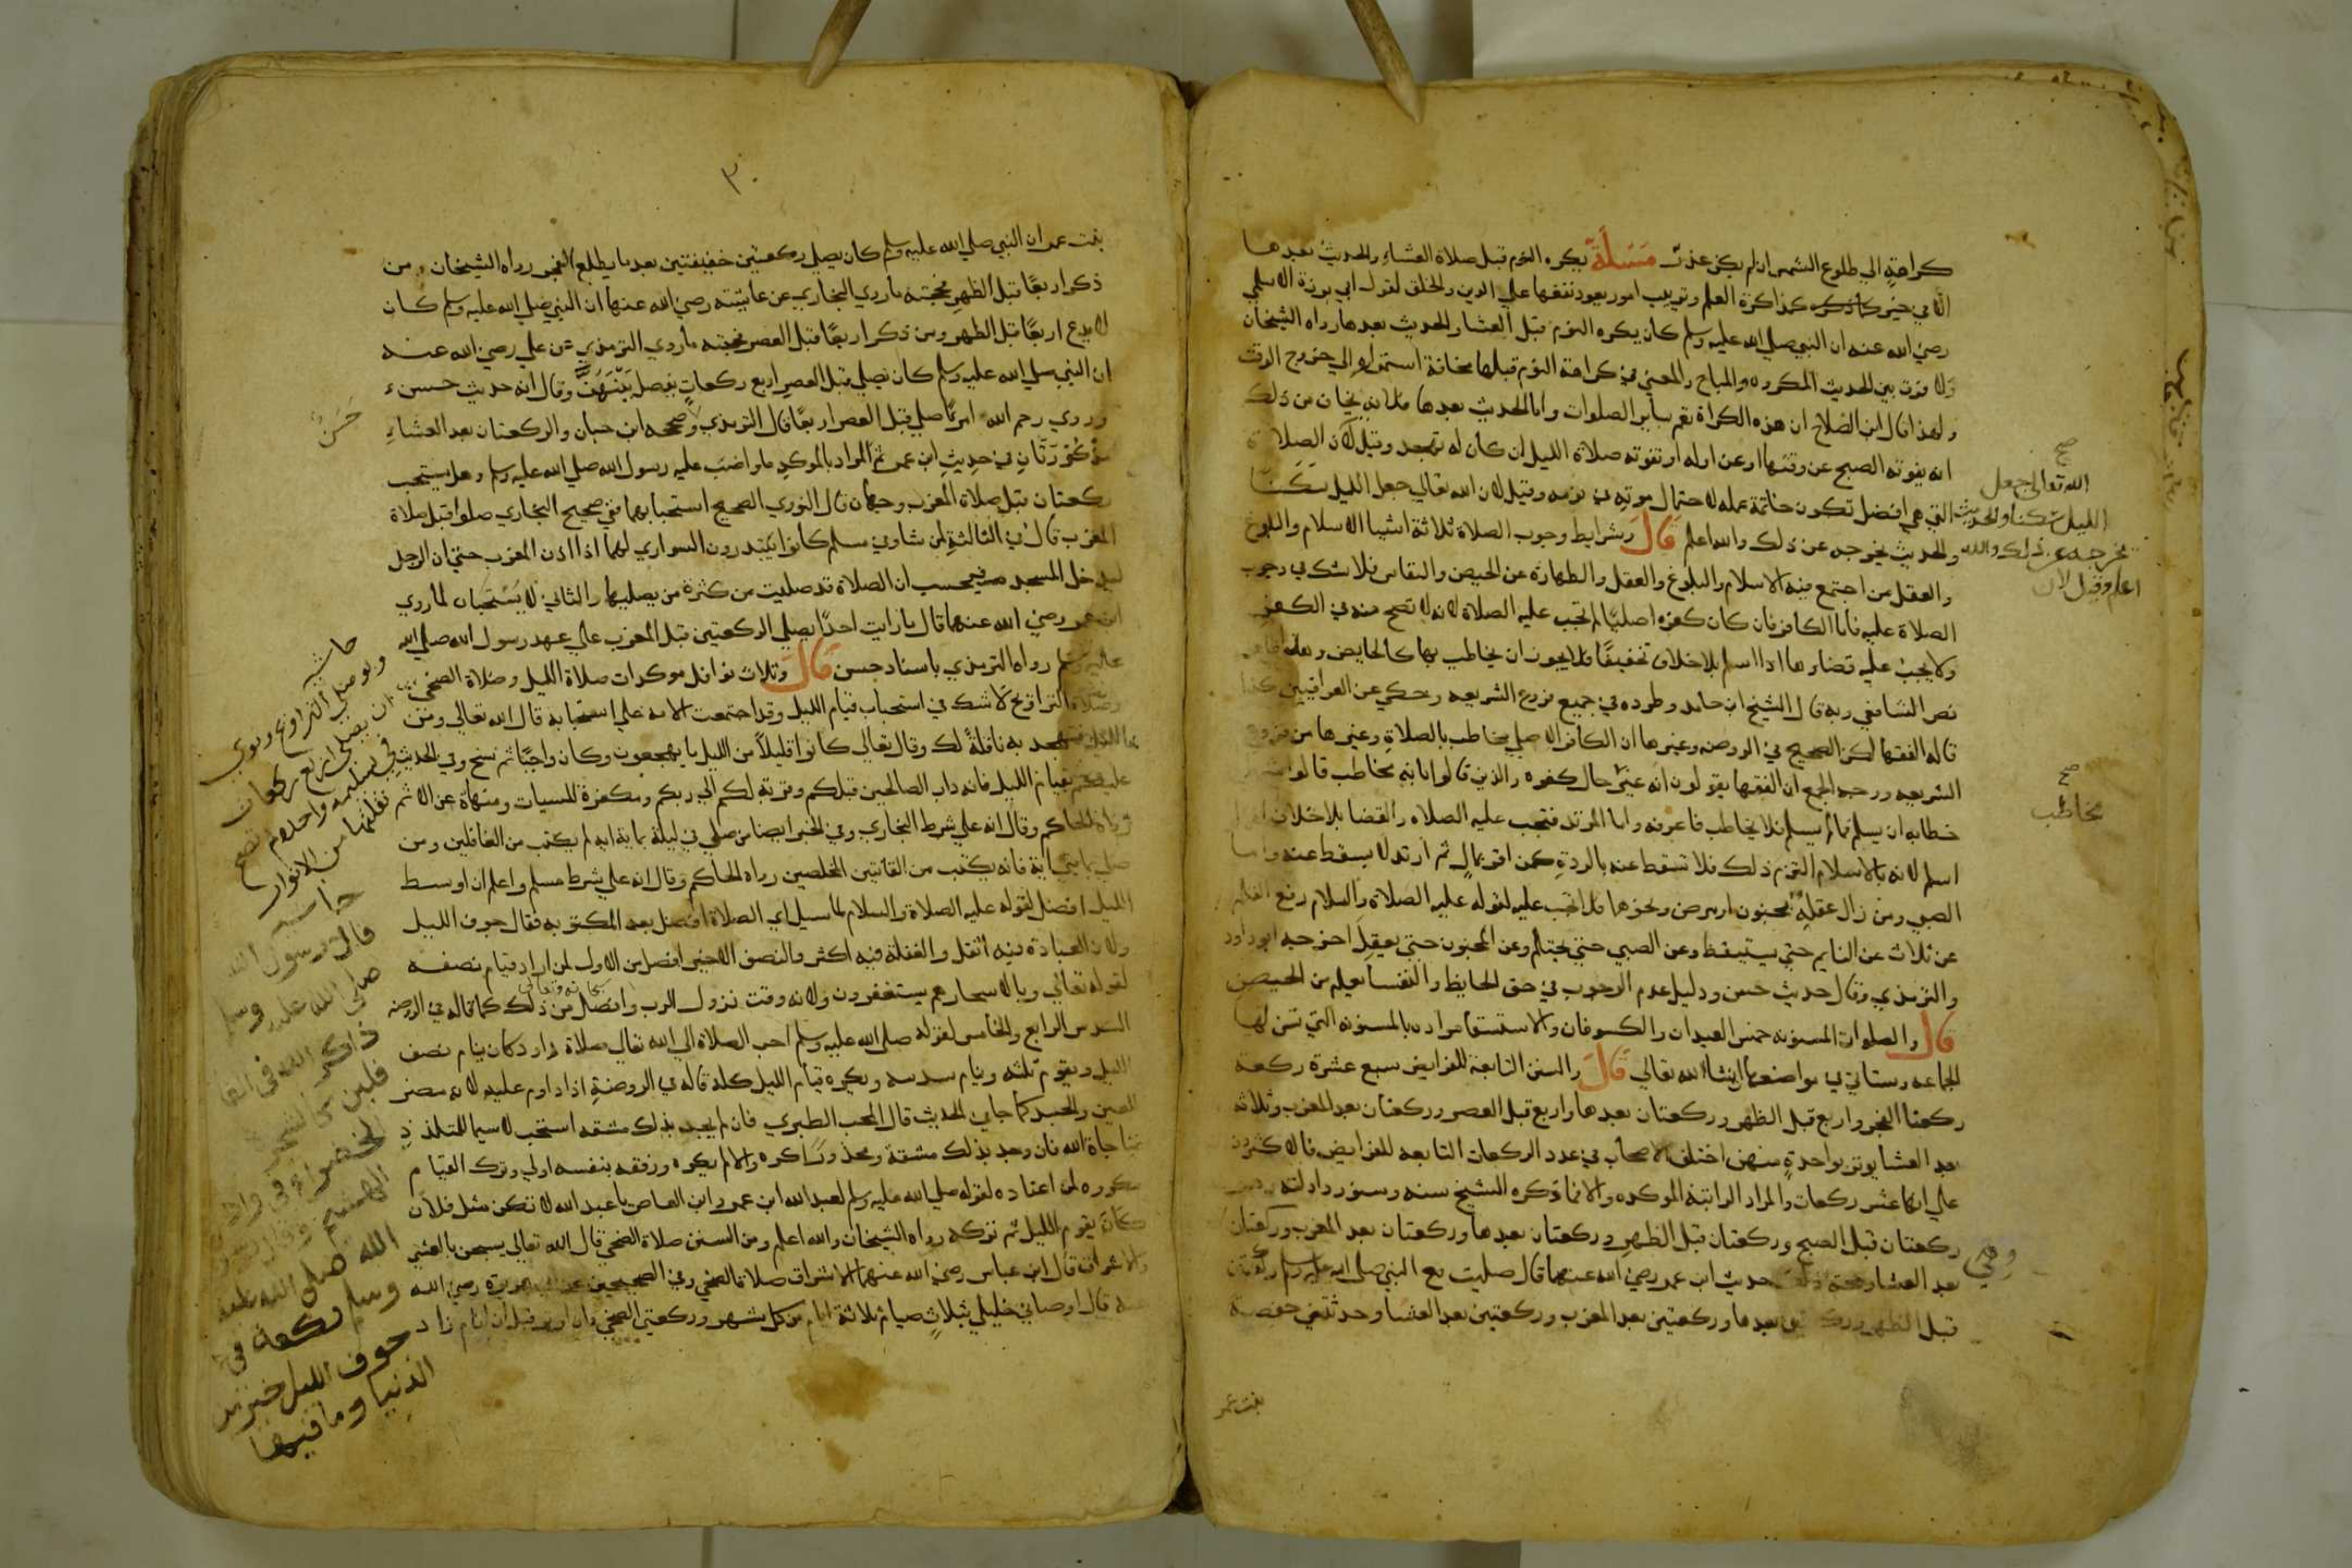 كراهةٍ الي طلوع الشمس ان لم يكن عذر مَسْئَلَة يكره النوم قبل صلاة العشاء والحديث بعدها
الا في خير كمذاكرة العلم وترتيب امور يعود نفعها علي الدين والخلق لقول ابي برزة الاسلمي
رضي الله عنه ان النبي صلي الله عليه وسلم كان يكره النوم قبل العشا والحديث بعدها رواه الشيخان
ولا فرق بين الحديث المكروه والمباح والمعني في كراهة النوم قبلها مخافة استمراره الي خروج الوقت
ولهذا قال ابن الصلاح ان هذه الكراهة تعم ساير الصلوات واما الحديث بعدها فلانه يخاف من ذلك
انه يفوته الصبح عن وقتها او عن اوله او تفوته صلاة الليل ان كان له تهجد وقيل لان الصلاة
التي هي افضل تكون خاتمة عمله لاحتمال موته في نومه وقيل لان الله تعالي جعل الليل سكنا
والحديث يخرجه عن ذلك والله اعلم قَالَ وشرايط وجوب الصلاة ثلاثة اشيا الاسلام والبلوغ
والعقل من اجتمع فيه الاسلام والبلوغ والعقل والطهارة عن الحيض والنفاس فلا شك في وجوب
الصلاة عليه فاما الكافر فان كان كفره اصليًا لم تجب عليه الصلاة لانه لا تصح منه في الكفر
ولا يجب عليه قضاوها اذا اسلم بلا خلاف تخفيفًا فلا يجوز ان يخاطب بها كالحايض وهذا
نص الشافعي وبه قال الشيخ ابو حامد وطرده في جميع فروع الشريعه وحكي عن العراقيين كذا
قاله الفقها لكن الصحيح في الروضه وغيرها ان الكافر الاصلي مخاطب بالصلاة وغيرها من فروع
الشريعه ووجه الجمع ان الفقها يقولون انه غير حال كفره والذين قالوا بانه مخاطب قالوا
خطابه ان يسلم فما لم يسلم فلا يخاطب فاعرفه واما المرتد فتجب عليه الصلاه والقضا بلا خلاف
اسلم لانه بالاسلام التزم ذلك فلا تسقط عنه بالردة كمن اقر بمالٍ ثم ارتد لا يسقط عنه واما
الصبي ومن زال عقله بجنون او مرض ونحوها فلا تجب عليه لقوله عليه الصلاة والسلام رفع القلم
عن ثلاث عن النايم حتي يستيقظ وعن الصبي حتي يحتلم وعن المجنون حتي يعقل اخرجه ابو داود
والترمذي وقال حديث حسن ودليل عدم الوجوب في حق الحايض والنفسا يعلم من الحيض
قَال والصلوات المسنونه خمس العيدان والكسوفان والاستسقا مراده بالمسنونه التي تسن لها
الجماعه وستاتي في مواضعها ان شا الله تعالي قَالَ والسنن التابعة للفرايض سبع عشرة ركعة
ركعتا الفجر واربع قبل الظهر وركعتان بعدها واربع قبل العصر وركعتان بعد المغرب وثلاثه
بعد العشا يوتر بواحدةٍ منهن اختلف الاصحاب في عدد الركعات التابعه للفرايض فالاكثرون
علي انها عشر ركعات والمراد الراتبة الموكده والا فما ذكره الشيخ سنه وسنورد ادلته
ركعتان قبل الصبح وركعتان قبل الظهر وركعتان بعدها وركعتان بعد المغرب وركعتان
بعد العشا وحجة ذلك حديث ابن عمر رضي الله عنهما قال صليت مع النبي صلي الله عليه وسلم ركعتين
قبل الظهر وركعتين بعدها وركعتين بعد المغرب وركعتين بعد العشا وحدثتني حفصة
بنت عمر
صح
الله تعالي جعل
الليل سكنا والحديث
يخرجه عن ذلك والله
اعلم وقيل لان
صح
مخاطب
وهي
٣٠
بنت عمر ان النبي صلي الله عليه وسلم كان يصلي ركعتين خفيفتين بعد ما يطلع الفجر رواه الشيخان ومن
ذكر اربعًا قبل الظهر فحجته ما روي البخاري عن عايشة رضي الله عنها ان النبي صلي الله عليه وسلم كان
لا يدع اربعًا قبل الظهر ومن ذكر اربعًا قبل العصر فحجته ما روي الترمذي عن علي رضي الله عنه
ان النبي صلي الله عليه وسلم كان يصلي قبل العصر اربع ركعات يفصل بينهن وقال انه حديث حسن
وروي رحم الله امرءًا صلي قبل العصر اربعًا قال الترمذي وصححه ابن حبان والركعتان بعد العشاء
مذكورتان في حديث ابن عمر ثم المراد بالموكد ما واضب عليه رسول الله صلي الله عليه وسلم وهل يستحب
ركعتان قبل صلاة المغرب وجهان قال النووي الصحيح استحبابهما ففي صحيح البخاري صلوا قبل صلاة
المغرب قال في الثالثة لمن شا وفي مسلم كانوا يبتدرون السواري لهما اذا اذن المغرب حتي ان الرجل
ليدخل المسجد فيحسب ان الصلاة قد صليت من كثرة من يصليهما والثاني لا يستحبان لما روي
ابن عمر رضي الله عنهما قال ما رايت احدًا يصلي الركعتين قبل المغرب علي عهد رسول الله صلي الله
عليه وسلم رواه الترمذي باسناد حسن قَالَ وثلاث نوافل موكدات صلاة الليل وصلاة الضحي
وصلاة التراويح لا شك في استحباب قيام الليل وقد اجتمعت الامه علي استحبابه قال الله تعالي ومن
الليل فتهجد به نافلةً لك وقال تعالي كانوا قليلاً من الليل ما يهجعون وكان واجبًا ثم نسخ وفي الحديث
عليكم بقيام الليل فانه داب الصالحين قبلكم وقربة لكم الي ربكم ومكفرة للسيات ومنهاة عن الاثم
رواه الحاكم وقال انه علي شرط البخاري وفي الخبر ايضا من صلي في ليلة بماية ايه لم يكتب من الغافلين ومن
صلي بمايتي اية فانه يكتب من القانتين المخلصين رواه الحاكم وقال انه علي شرط مسلم واعلم ان اوسط
الليل افضل لقوله عليه الصلاة والسلام لما سيل اي الصلاة افضل بعد المكتوبه فقال جوف الليل
ولان العبادة فيه اثقل والغفلة فيه اكثر والنصف الاخير افضل من الاول لمن اراد قيام نصفه
لقوله تعالي وبالاسحار هم يستغفرون ولانه وقت نزول الرب سبحانه وتعالي وافضل من ذلك كما قاله في الروضه
السدس الرابع والخامس لقوله صلي الله عليه وسلم احب الصلاة الي الله تعالي صلاة داود كان ينام نصف
الليل ويقوم ثلثه وينام سدسه ويكره قيام الليل كله قاله في الروضة اذا داوم عليه لانه مضر
للعين والجسد كما جا في الحديث قال المحب الطبري فان لم يجد بذلك مشقه استحب لا سيما للمتلذذ
بمناجاة الله فان وجد بذلك مشقة ومحذورًا كره والا لم يكره ورفقه بنفسه اولي وترك القيام
مكروه لمن اعتاده لقوله صلي الله عليه وسلم لعبد الله ابن عمرو ابن العاص يا عبد الله لا تكن مثل فلان
كان يقوم الليل ثم تركه رواه الشيخان والله اعلم ومن السنن صلاة الضحي قال الله تعالي يسبحن بالعشي
والاشراق قال ابن عباس رضي الله عنهما الاشراق صلاة الضحي وفي الصحيحين عن ابي هريرة رضي الله
عنه قال اوصاني خليلي بثلاثٍ صيام ثلاثة ايام من كل شهر وركعتي الضحي وان اوتر قبل ان انام زاد
حَسَنٌ
حاشيه
ولو صلي التراويح ونوي
ان يصلي اربع ركعات
في تسليمه واحدة لم تصح
نقلتها من الانوار
حاشيه
قال رسول الله
صلى الله عليه وسلم
ذاكر الله في
الله صلى الله عليه
وسلم ركعة في
جوف الليل خير من
الدنيا وما فيها